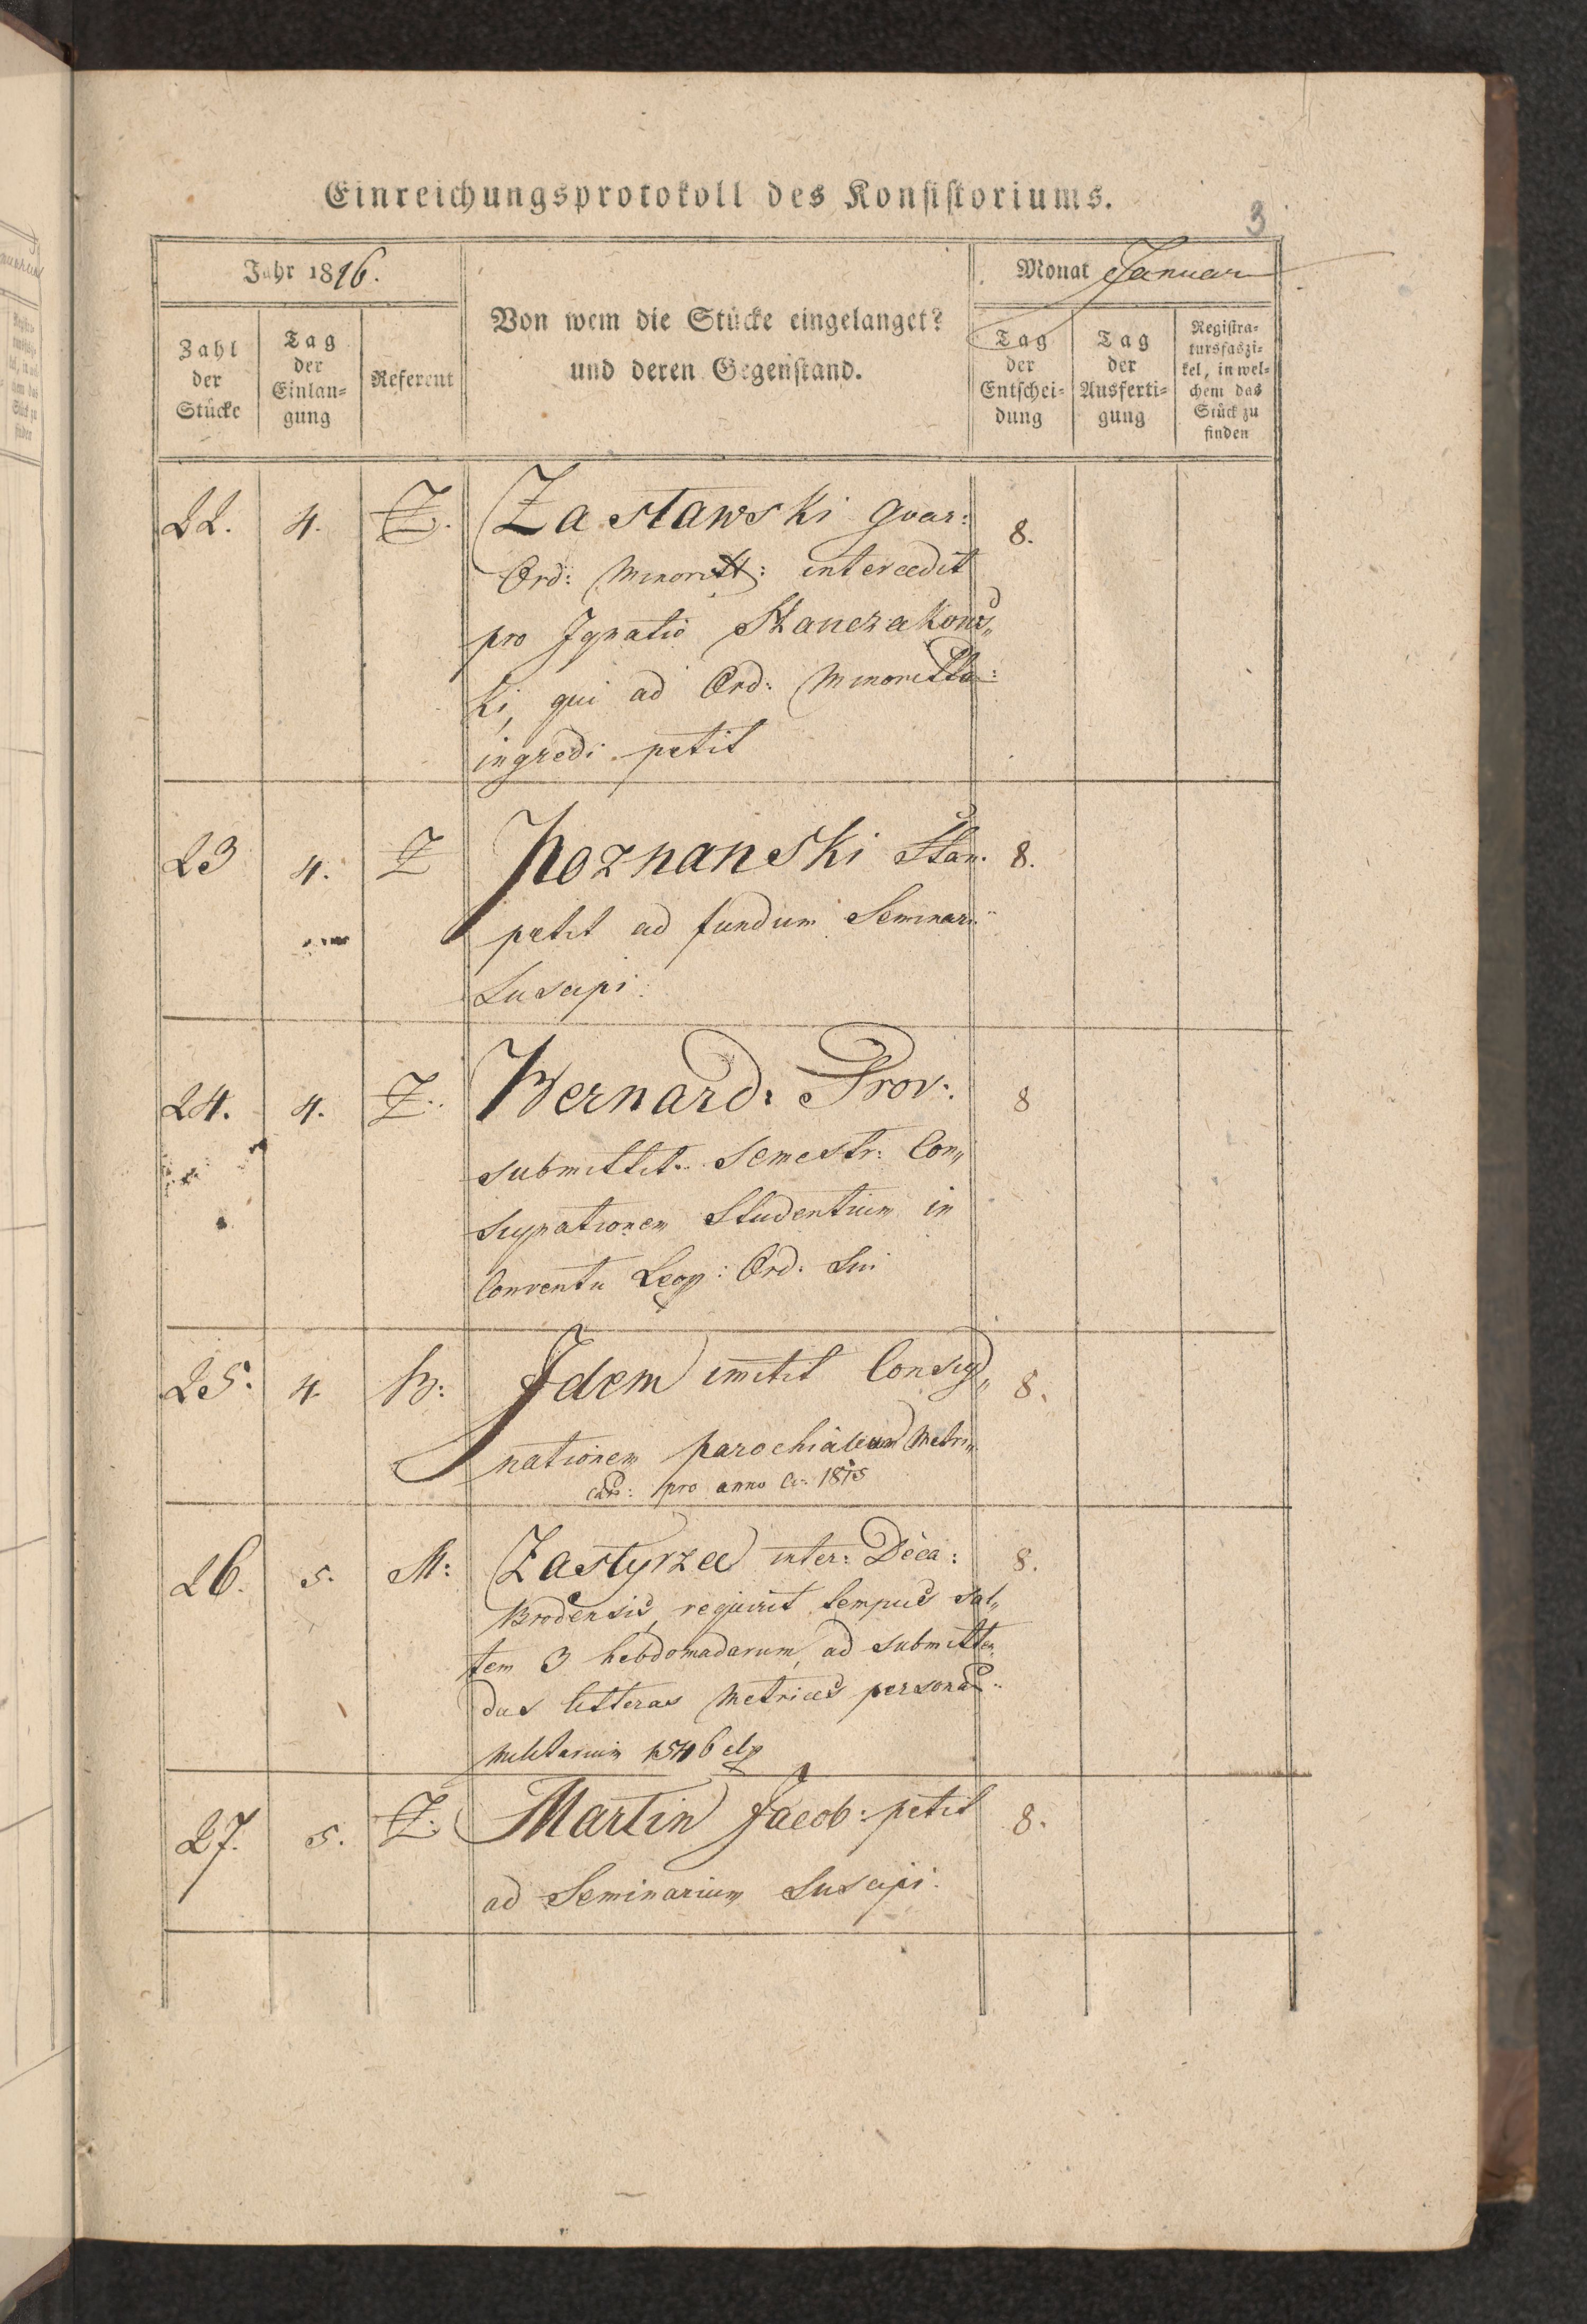 Einreichungsprotokoll des Konsistoriums.
3
Jahr 1816.
Monat Januar
Zahl der Stücke
Tag der Einlan=gung
Referent
Von wem die Stücke eingelanget?
und deren Gegenstand.
Tag der Entschei=dung
Tag der Ausferti=gung
Registra=tursfaszi=kel, in wel=chem das Stück zu finden
22. 4. Z. Zastawski Guar: 8.
Ord: Minoritt: intercedit
pro Ignatio
ki, qui ad Ord: Minoritta:
ingredi petit
23 4. Z Poznanski Stan. 8.
petit ad fundum Seminarii
Suscipi.
24. 4. Z. Bernard: Prov: 8
submittit semestr: Con„
signationem Studentium in
Conventu Leop: Ord: Sui
25. 4. B: Idem im̄itit Consig„ 8.
nationem parochialium Metri„
car: pro anno a: 1815
26. 5. M: Zastyrzec inter: Deca: 8.
Brodensis, requirit tempus sal„
tem 3 hebdomadarum, ad submitten
das litteras Metrices
Militarium
27. 5. Z. Martin Jacob: petit 8.
ad Seminarium Suscipi.